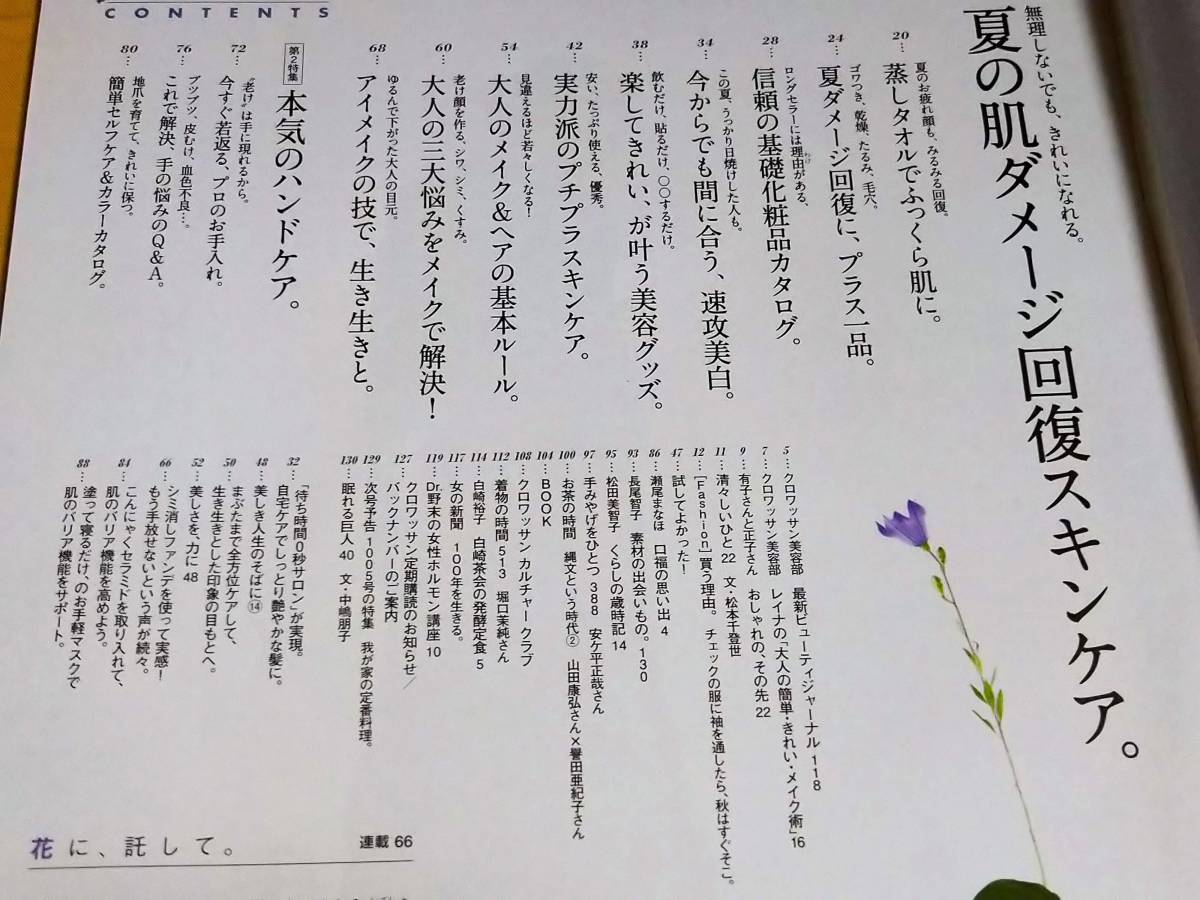 CONTENTS
無理しないでも、きれいになれる。
夏の肌ダメージ回復スキンケア。
20…
夏のお疲れ顔も、みるみる回復。
蒸しタオルでふっくら肌に。
24…
ゴワつき、乾燥、たるみ、毛穴。
夏ダメージ回復に、プラス一品。
28…
ロングセラーには理由がある、
わけ
信頼の基礎化粧品カタログ。
34…
この夏、うっかり日焼けした人も。
今からでも間に合う、速攻美白。
38…
飲むだけ、貼るだけ、○○するだけ。
楽してきれい、が叶う美容グッズ。
42…
安い、たっぷり使える、優秀。
実力派のプチプラスキンケア。
54…
見違えるほど若々しくなる!
大人のメイク&ヘアの基本ルール。
60…
老け顔を作る、シワ、シミ、くすみ。
大人の三大悩みをメイクで解決!
68…
ゆるんで下がった大人の目元。
アイメイクの技で、生き生きと。
第2特集
本気のハンドケア。
72…
“老け”は手に現れるから。
今すぐ若返る、プロのお手入れ。
76…
ブツブツ、皮むけ、血色不良…。
これで解決、手の悩みのQ&A。
80…
地爪を育てて、きれいに保つ。
簡単セルフケア&カラーカタログ。
5…クロワッサン美容部 最新ビューティジャーナル 118
7…クロワッサン美容部 レイナの「大人の簡単・きれい・メイク術」16
9…有子さんと正子さん おしゃれの、その先 22
11…清々しいひと 22 文・松本千登世
12…[Fashion]買う理由。 チェックの服に袖を通したら、秋はすぐそこ。
47…試してよかった!
86…瀬尾まなほ 口福の思い出 4
93…長尾智子 素材の出会いもの。130
95…松田美智子 くらしの歳時記 14
97…手みやげをひとつ 388 安ケ平正哉さん
100…お茶の時間 縄文という時代② 山田康弘さん×譽田亜紀子さん
104…BOOK
108…クロワッサン カルチャークラブ
112…着物の時間 513 堀口茉純さん
114…白崎裕子 白崎茶会の発酵定食 5
117…女の新聞 100年を生きる。
119…Dr.野末の女性ホルモン講座 10
127…クロワッサン定期購読のお知らせ/
バックナンバーのご案内
129…次号予告 1005号の特集 我が家の定番料理。
130…眠れる巨人 40 文・中嶋朋子
32…「待ち時間0秒サロン」が実現。
自宅ケアでしっとり艶やかな髪に。
48…美しき人生のそばに⑭
50…まぶたまで全方位ケアして、
生き生きとした印象の目もとへ。
52…美しさを、力に 48
66…シミ消しファンデを使って実感!
もう手放せないという声が続々。
84…こんにゃくセラミドを取り入れて、
肌のバリア機能を高めよう。
88…塗って寝るだけ、のお手軽マスクで
肌のバリア機能をサポート。
花に、託して。
連載 66